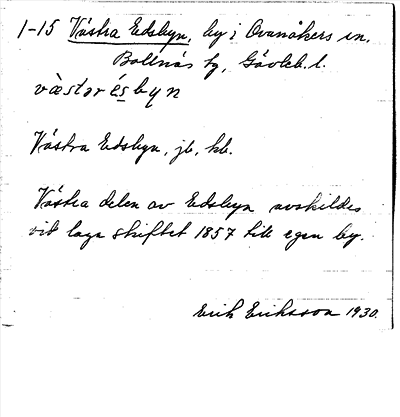 1-15 Västra Edsbyn, by i Ovanåkers sn,
Bollnäs tg, Gävleb. l.
væ̀stər ésbyn
Västra Edsbyn, jb, kb.
Västra delen av Edsbyn avskildes
vid laga skiftet 1857 till egen by.
Erik Eriksson 1930.